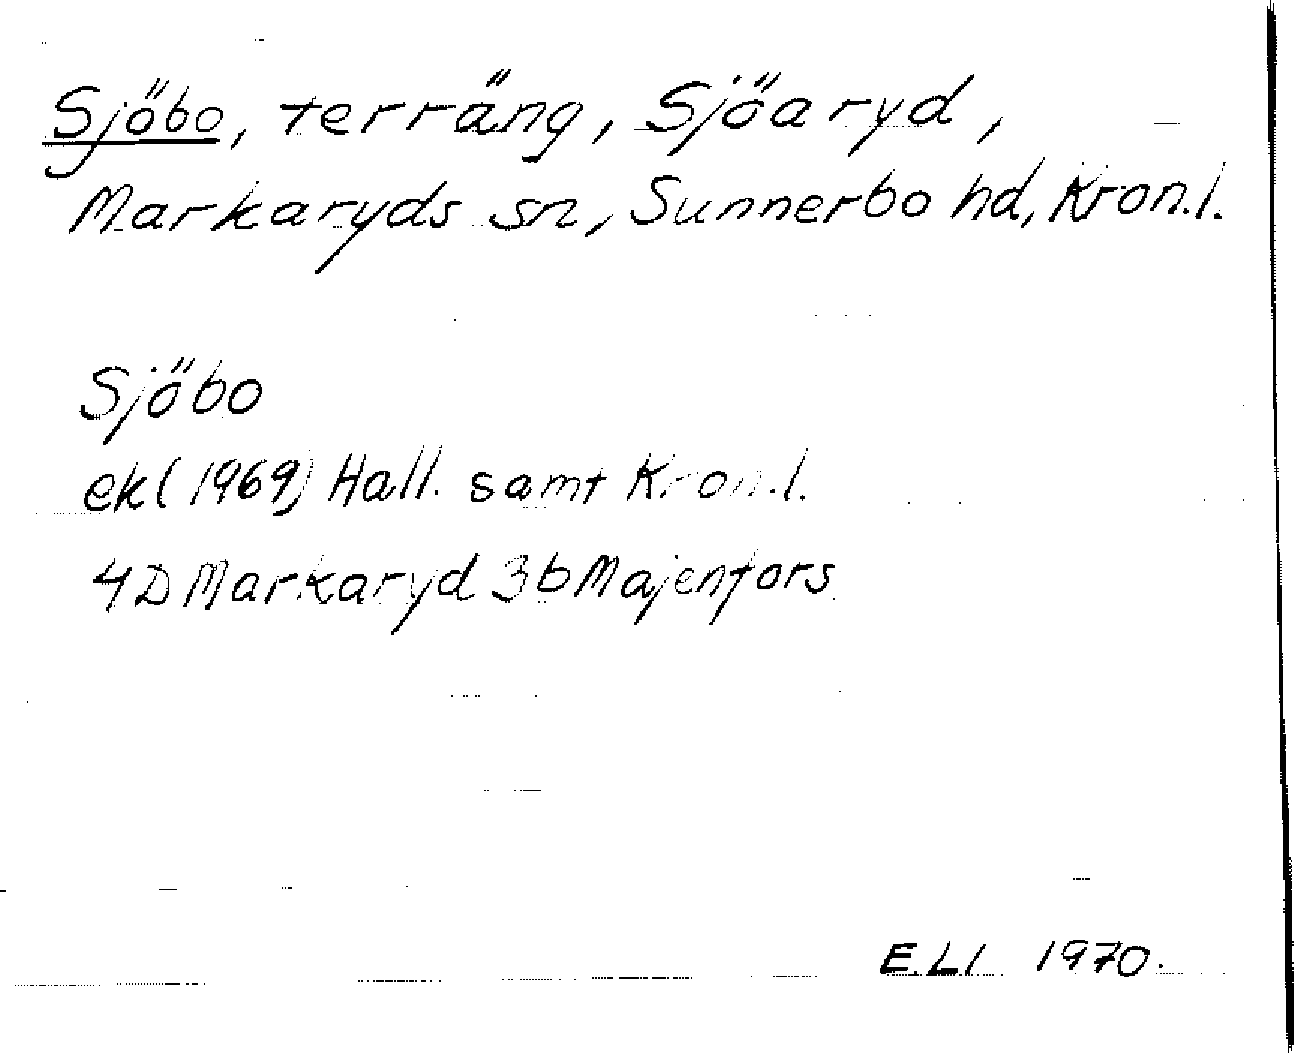 Sjöbo, terräng, Sjöaryd,
Markaryds sn, Sunnerbo hd, Kron.l.
Sjöbo
ek (1969) Hall. samt Kron.l.
4D Markaryd 3b Majenfors
E.L1 1970.